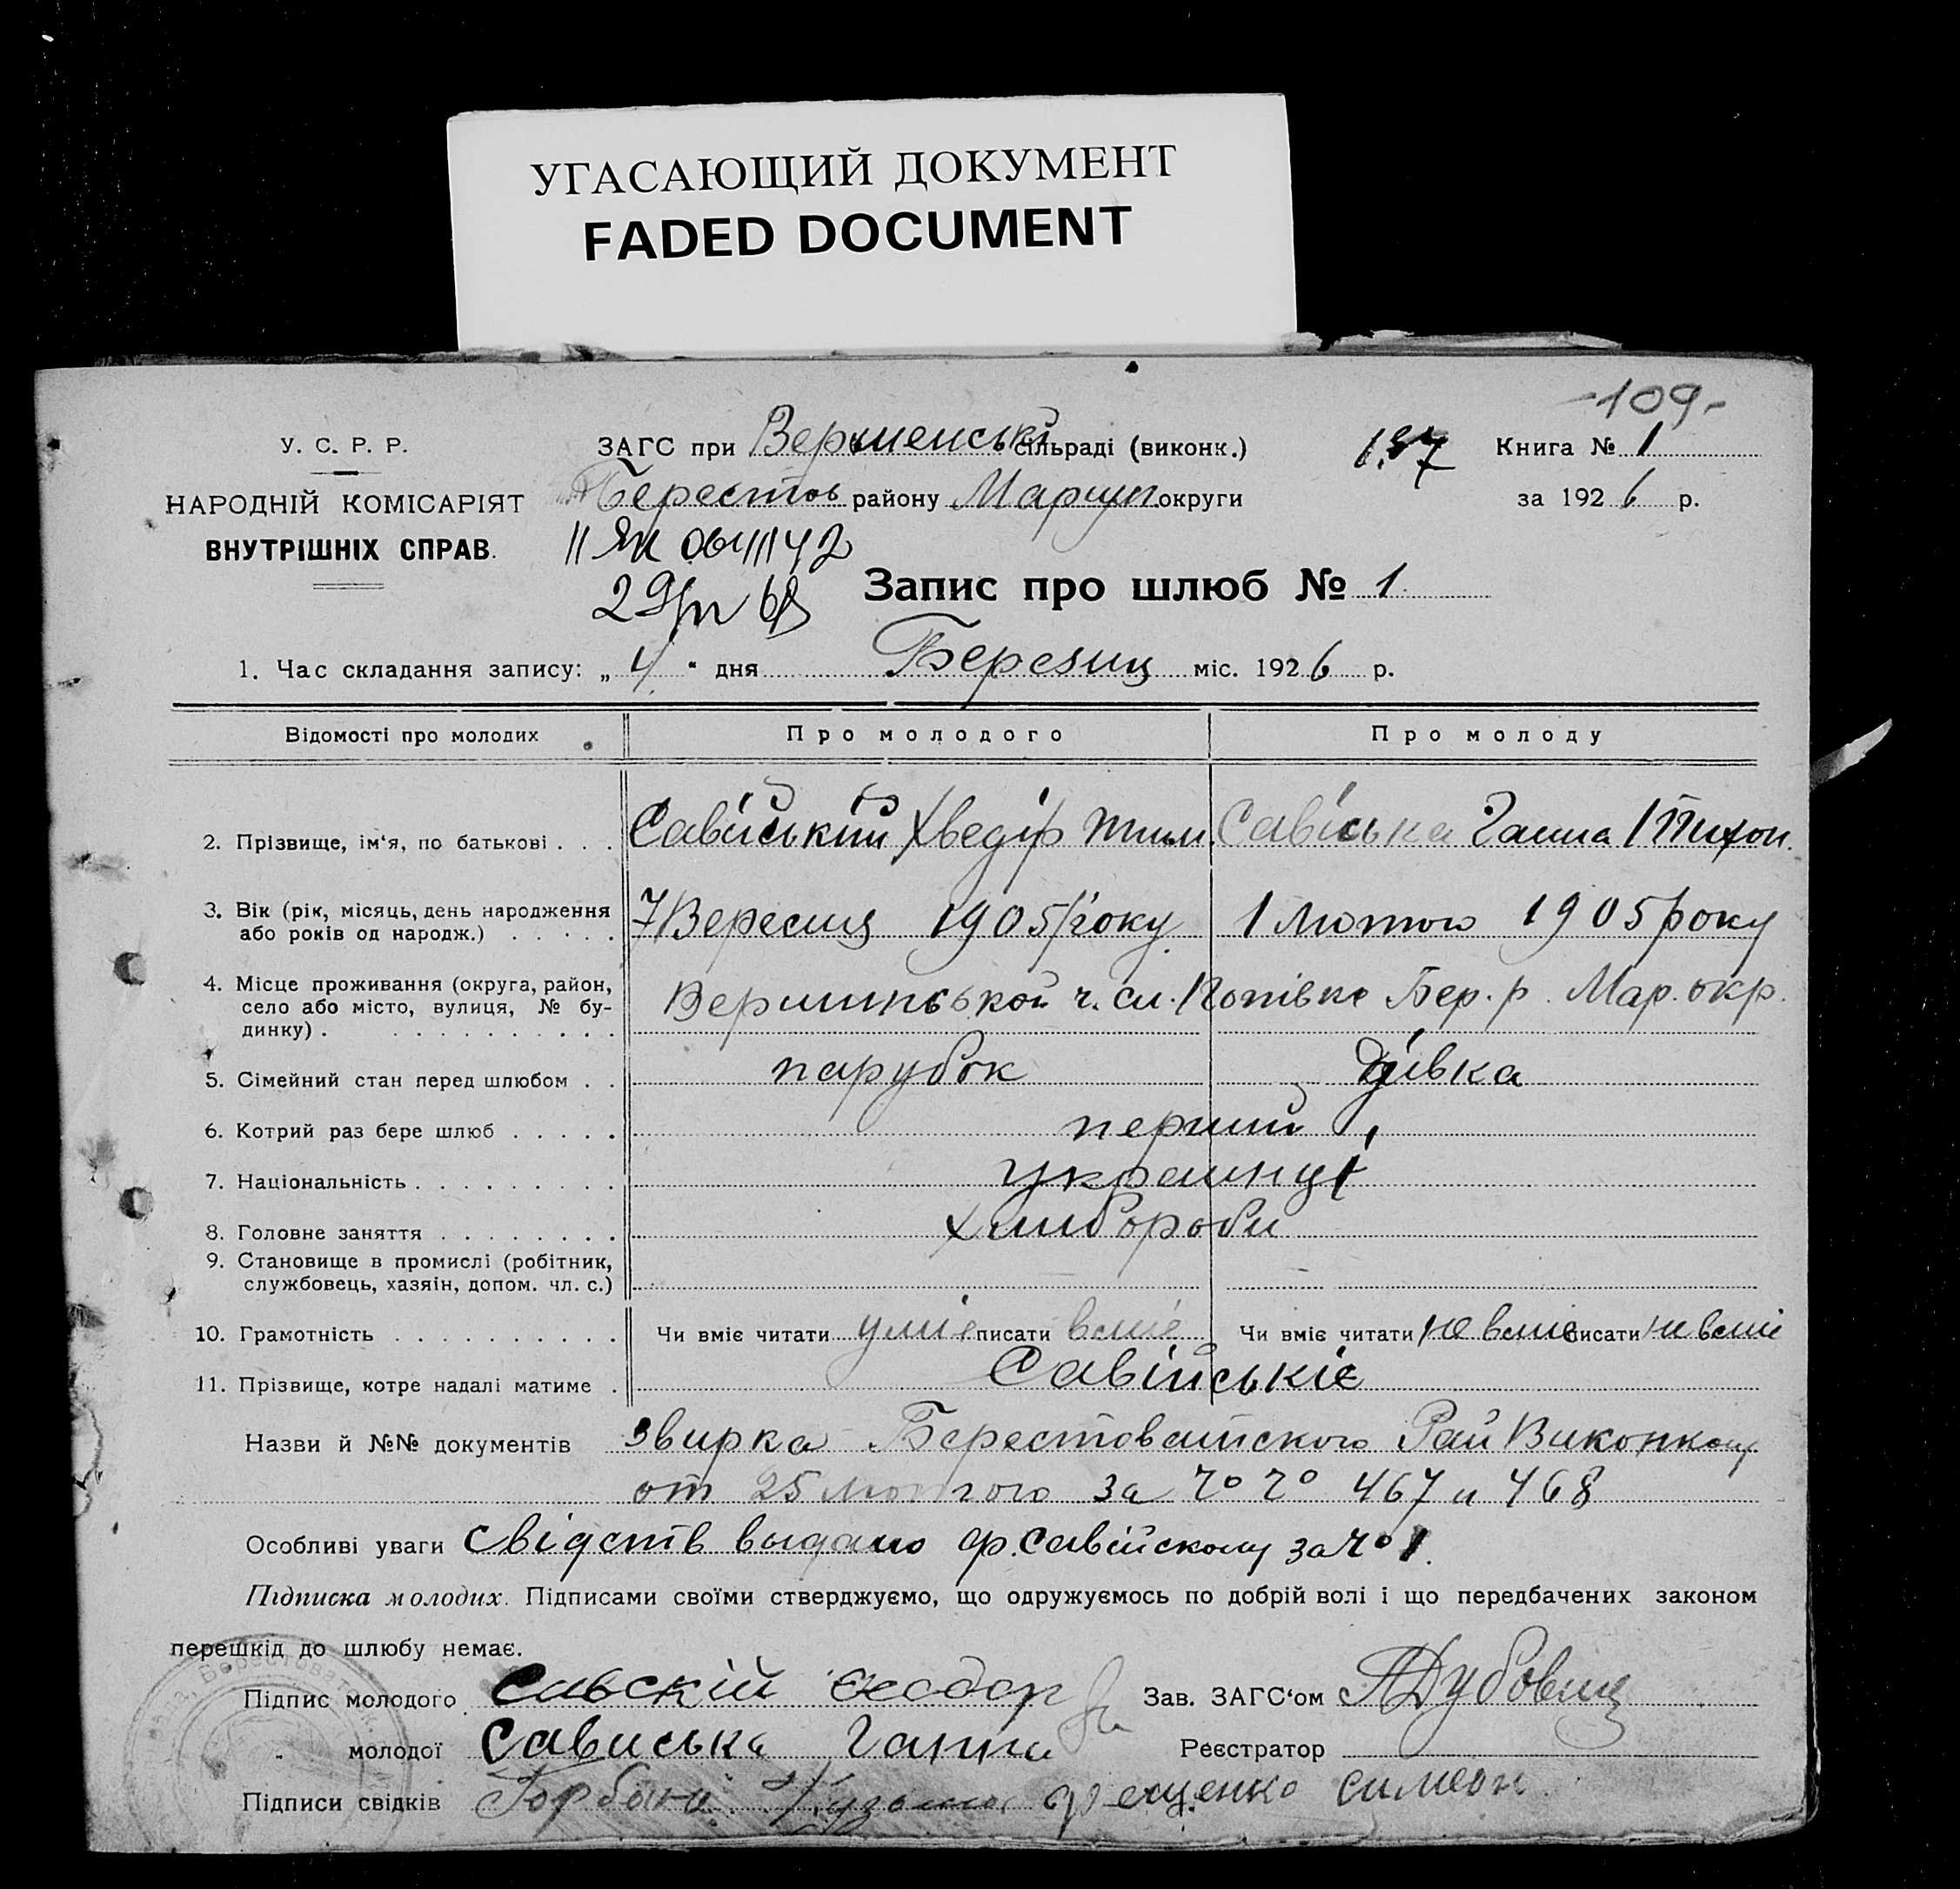 УГАСАЮЩИЙ ДОКУМЕНТ
FADED DOCUMENT
-109-
У. С. Р. Р.
НАРОДНІЙ КОМІСАРІЯТ
ВНУТРІШНІХ СПРАВ.
ЗАГС при сільраді (виконк.)
Берестов району Мариуп. округи
Книга № 1
за 1926 р.
Запис про шлюб № 1.
1. Час складання запису: „ 4 “ дня Березня міс. 1926 р.
Відомості про молодих Про молодого Про молоду
2. Прізвище, ім‘я, по батькові . . . Савійський Хведір Тим. Савіська Ганна Тихон.
3. Вік (рік, місяць, день народження або років од народж.) . . . . . 7 Вересня 1905 року 1 Лютого 1905 року
4. Місце проживання (округа, район, село або місто, вулиця, № будинку) . Бер. р. Мар. окр.
5. Сімейний стан перед шлюбом . . парубок дівка
6. Котрий раз бере шлюб . . . . . перший
7. Національність . . . . . . . . . украинці
8. Головне заняття . . . . . . . . хлибороби
9. Становище в промислі (робітник, службовець, хазяїн, допом. чл. с.)
10. Грамотність . . . . . . . . . . Чи вміє читати уміє писати вміє Чи вміє читати не вміє писати не вміє
11. Прізвище, котре надалі матиме . Савійськіє
Назви й №№ документів звирка Рай Виконкому
от 25 Лютого за 467 и 468
Особливі уваги свідств выдано ф. Савійскому за № 1.
Підписка молодих. Підписами своїми стверджуємо, що одружуємось по добрій волі і що передбачених законом
перешкід до шлюбу немає.
Підпис молодого Савскій Феодор Зав. ЗАГС‘ом Дубовиц
„ молодої Сависька Ганна Реєстратор
Підписи свідків Горбань Кузьма Фещенко Симеон